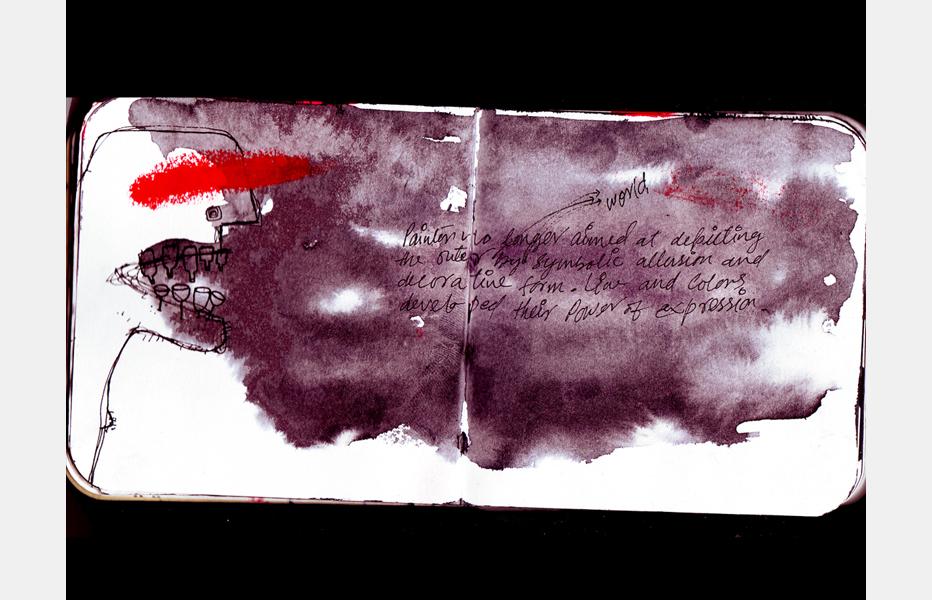 world
Painters no longer aimed at depicting
the outer by symbolic allusion and
decorative form. Line and Colors
developed their Power of expression.